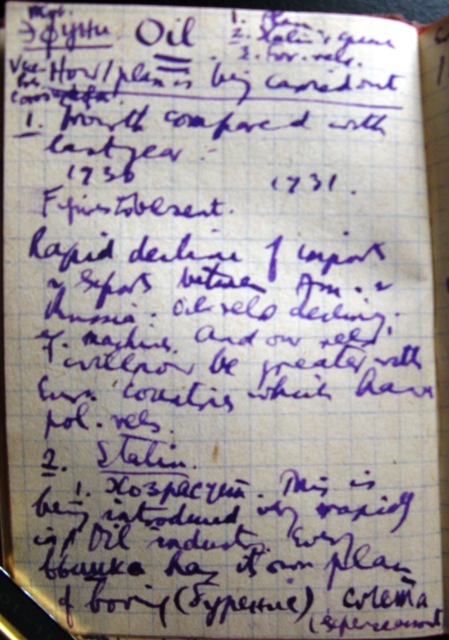 Oil
1. Plan
2. Stalin's
3. For. rels.
How plan is being carried out
1. Growth compared with
last year :-
1930 1931.
Figures to be sent.
Rapid decline of imports
& exports between Am. &
Russia. Oil
machines. And our
will now be greater with
Eur. Countries which have
pol. rels.
2. Stalin.
1. Хозрасчет. This is
being introduced very rapidly
in Oil industry. Every
вышка has its own plan
of boring (Бурение)